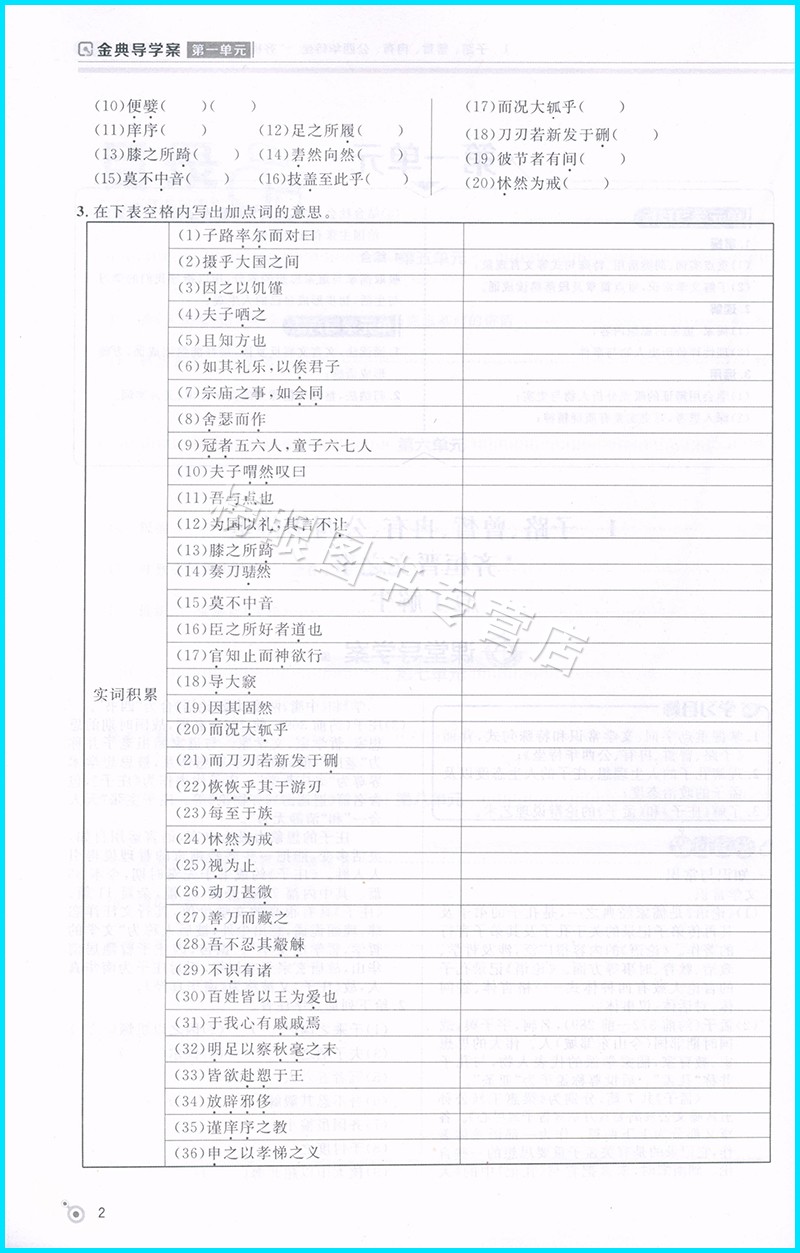 金典导学案 第一单元
(10)便嬖(　　)(　　)
(11)庠序(　　) (12)足之所履(　　)
(13)膝之所踦(　　) (14)砉然向然(　　)
(15)莫不中音(　　) (16)技盖至此乎(　　)
(17)而况大軱乎(　　)
(18)刀刃若新发于硎(　　)
(19)彼节者有间(　　)
(20)怵然为戒(　　)
3. 在下表空格内写出加点词的意思。
实词积累
(1)子路率尔而对曰
(2)摄乎大国之间
(3)因之以饥馑
(4)夫子哂之
(5)且知方也
(6)如其礼乐,以俟君子
(7)宗庙之事,如会同
(8)舍瑟而作
(9)冠者五六人,童子六七人
(10)夫子喟然叹曰
(11)吾与点也
(12)为国以礼,其言不让
(13)膝之所踦
(14)奏刀騞然
(15)莫不中音
(16)臣之所好者道也
(17)官知止而神欲行
(18)导大窾
(19)因其固然
(20)而况大軱乎
(21)而刀刃若新发于硎
(22)恢恢乎其于游刃
(23)每至于族
(24)怵然为戒
(25)视为止
(26)动刀甚微
(27)善刀而藏之
(28)吾不忍其觳觫
(29)不识有诸
(30)百姓皆以王为爱也
(31)于我心有戚戚焉
(32)明足以察秋毫之末
(33)皆欲赴愬于王
(34)放辟邪侈
(35)谨庠序之教
(36)申之以孝悌之义
2